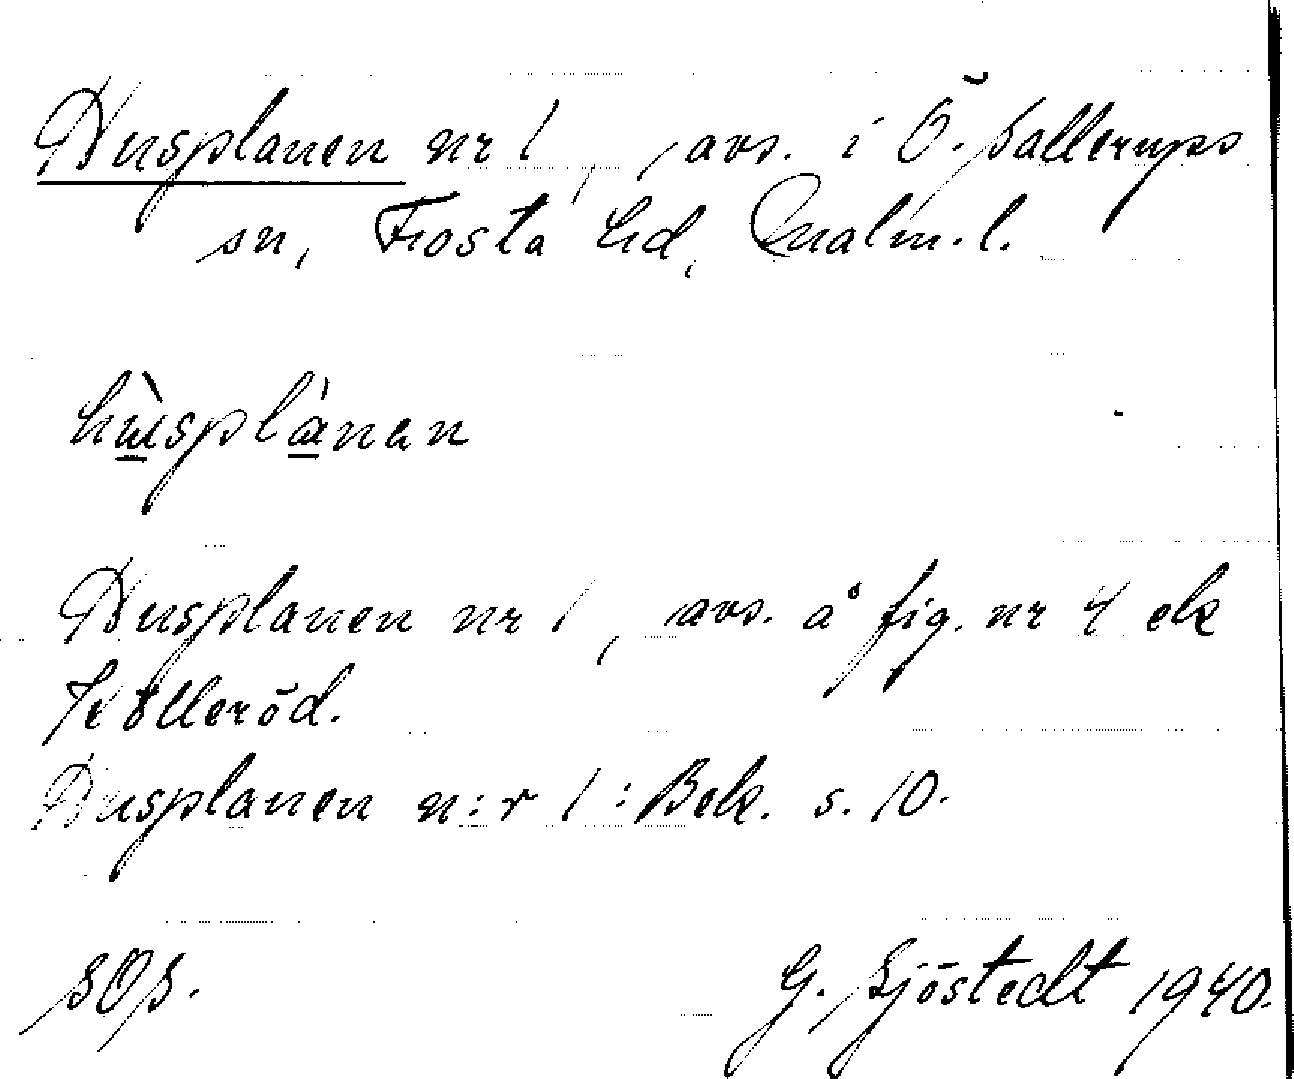 Husplanen nr 1, avs. i Ö. Sallerups
sn, Frosta hd, Malm. l.
hùsplánan
Husplanen nr 1, avs. å fig. nr 4 ek
Husplanen n:r 1: Bek. s. 10.
SOS. G. Sjöstedt 1940.